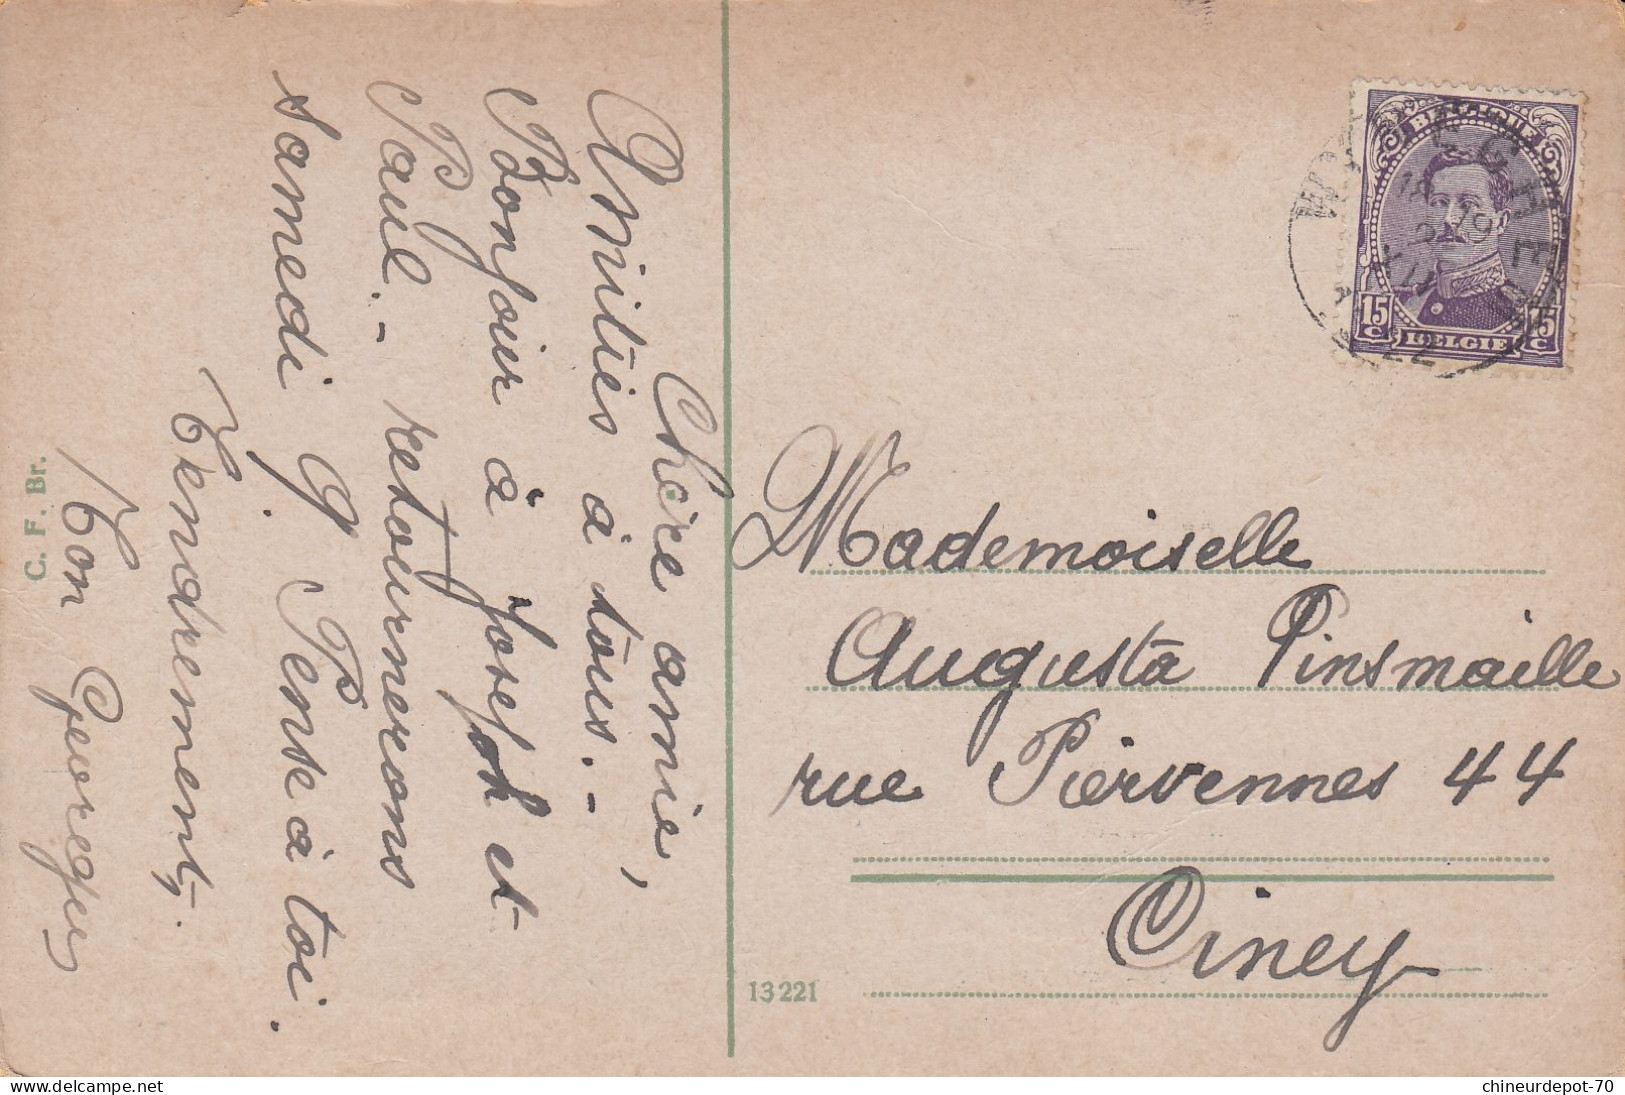 Chère amie,
Amitiés à tous. -
Bonjour à Joseph et
Paul. - retournerons
samedi 9. Pense à toi.
Tendrement,
Ton Georges
C. F. Br.
13221
BELGIQUE
15 c 15 c
BELGIE
Mademoiselle
Augusta Pinsmaille
rue Piervennes 44
Ciney
chineurdepot-70